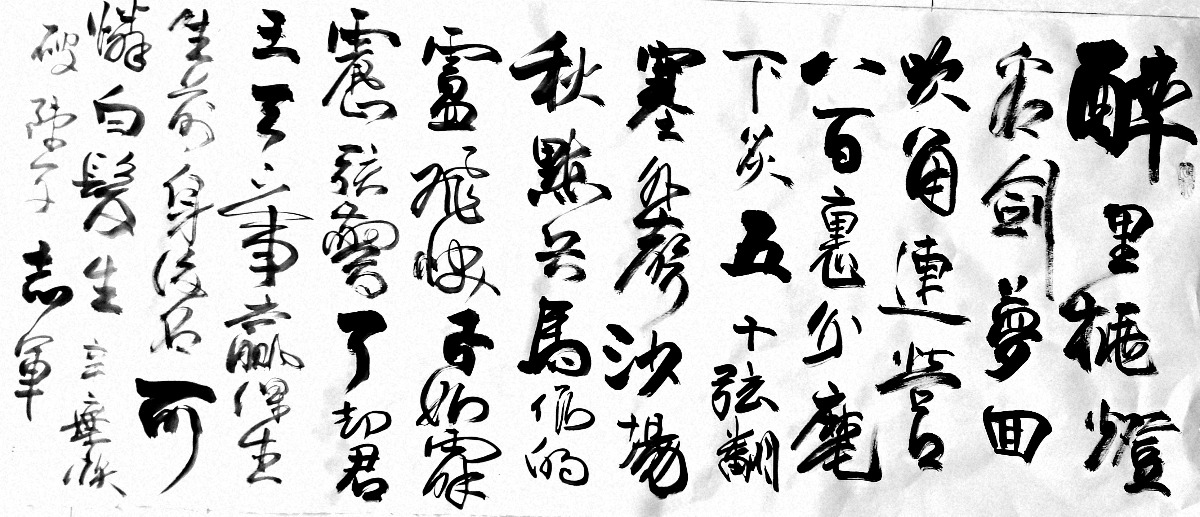 醉里挑燈
看劍夢囬
吹角連營
八百裏分麾
下炙五十弦翻
塞外聲沙場
秋點兵馬作的
盧飛快弓如霹
靂弦驚了却君
王天下事贏得生
生前身後名可
憐白髮生辛棄疾
破陣子志軍